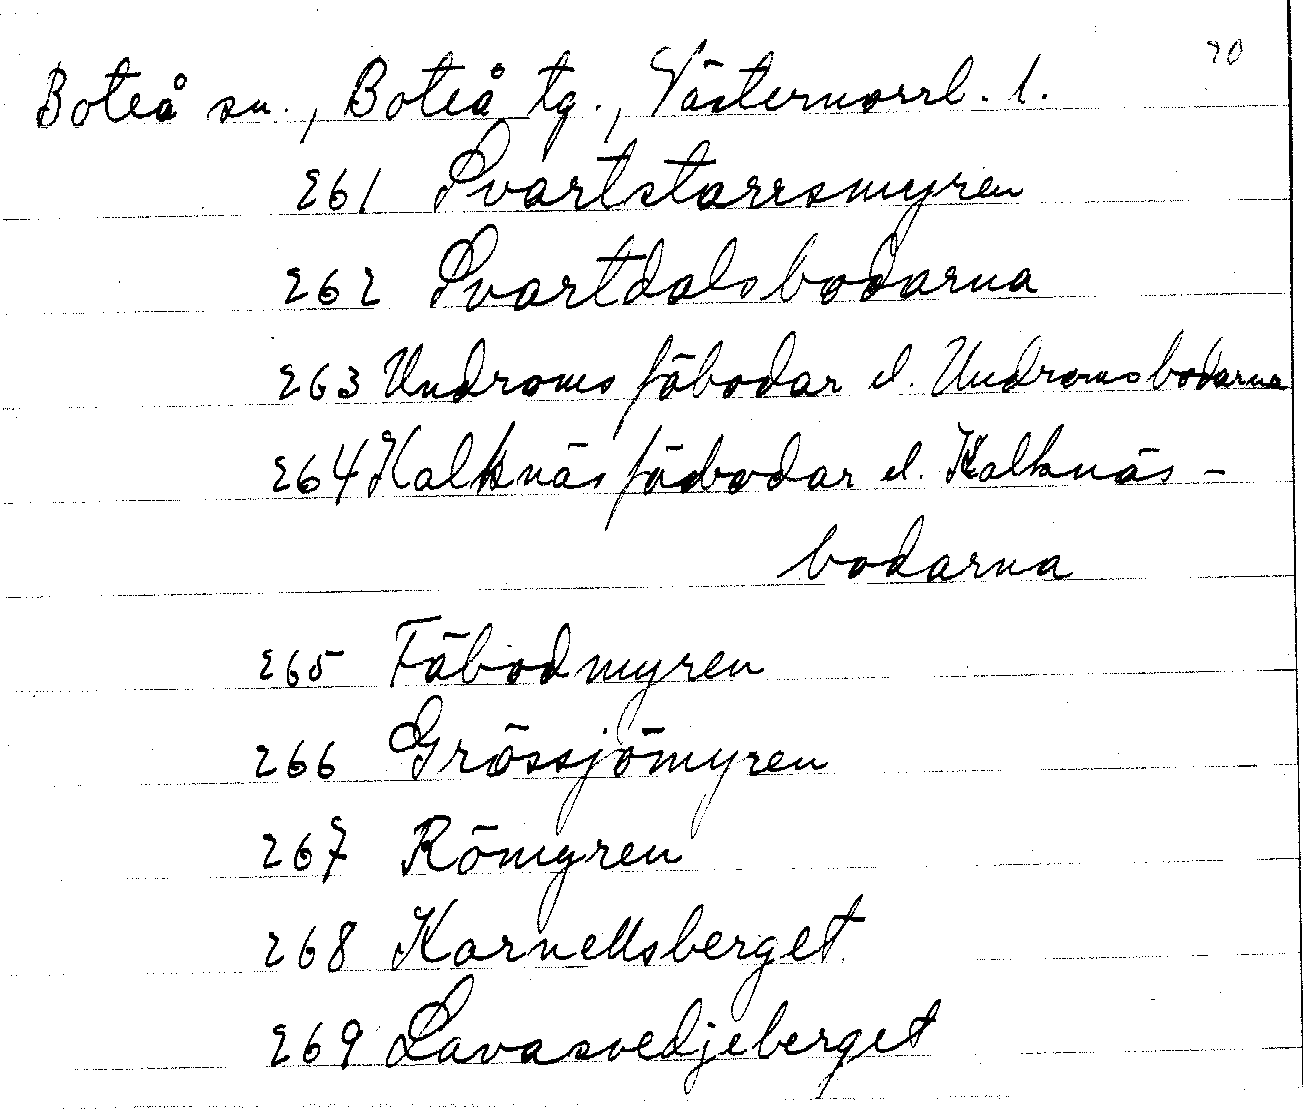 70
Boteå sn., Boteå tg., Västernorrl. l.
261 Svartstarrsmyren
262 Svartdalsbodarna
263 Undroms fäbodar el. Undromsbodarna
264 Kalknäs fäbodar el. Kalknäs-
bodarna
265 Fäbodmyren
266 Grössjömyren
267 Römyren
268 Karnellsberget
269 Lavasvedjeberget